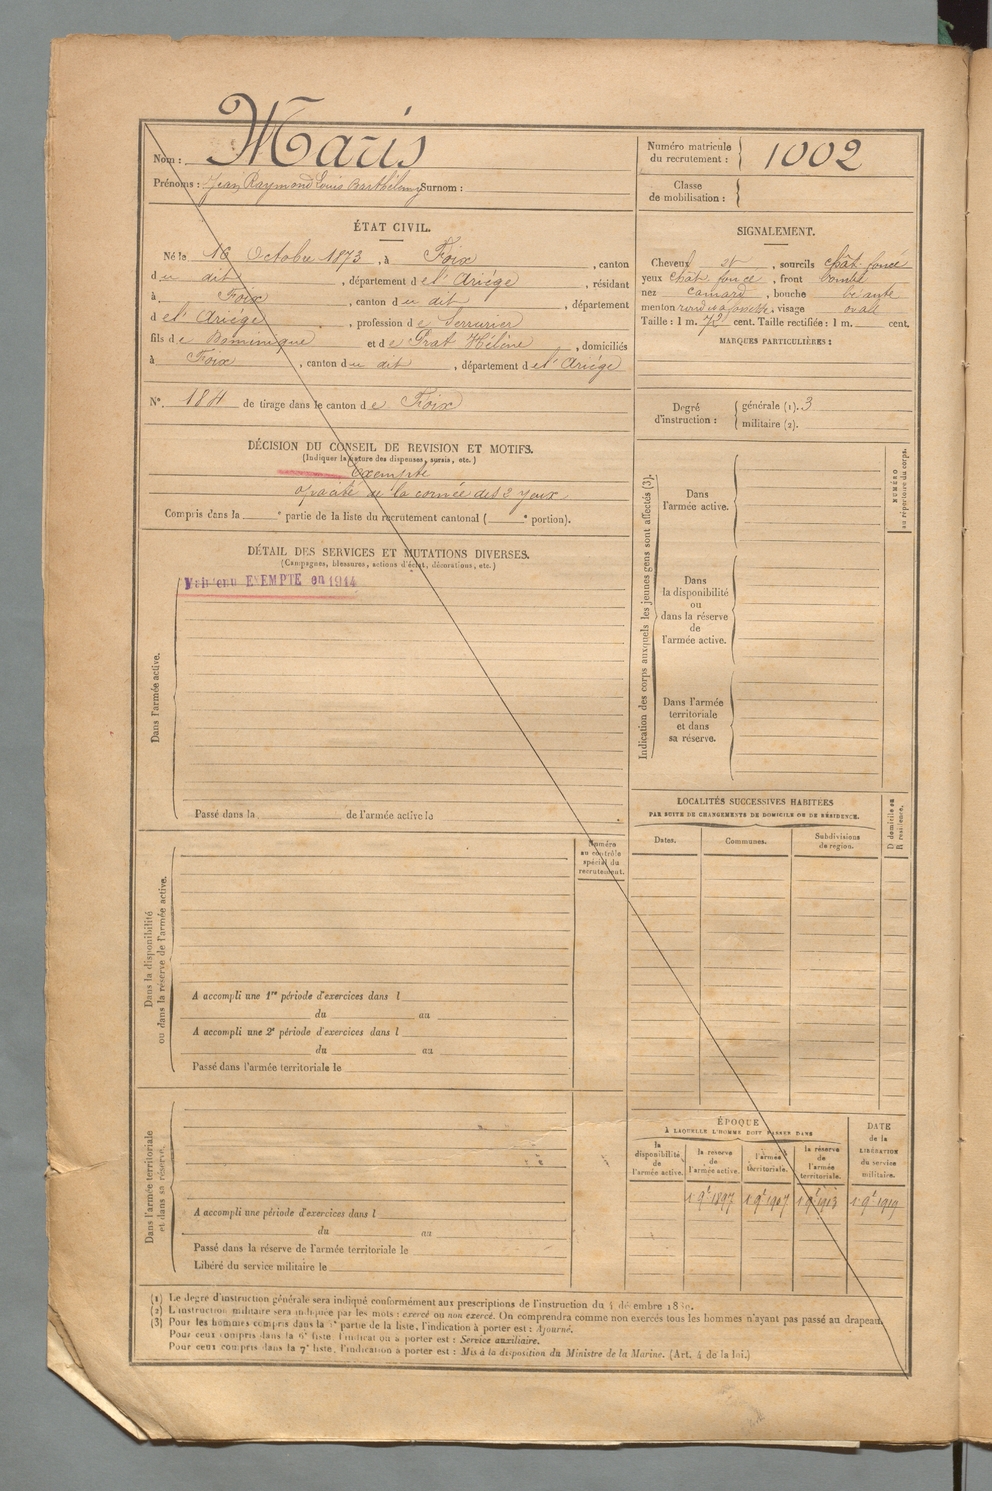 Nom : Maris
Prénoms : Jean Raymond Louis Barthélemy Surnom :
Numéro matricule du recrutement : 1002
Classe de mobilisation :
ÉTAT CIVIL.
Né le 16 Octobre 1873, à Foix, canton
du dit, département de l'Ariège, résidant
à Foix, canton du dit, département
de l'Ariège, profession de Serrurier
fils de Dominique et de Prat Hélène, domiciliés
à Foix, canton du dit, département de l'Ariège
N°. 184 de tirage dans le canton de Foix
SIGNALEMENT.
Cheveux st, sourcils chât. foncé
yeux chât. foncé, front bombé
nez camard, bouche béante
menton rond à fossette, visage ovale
Taille : 1 m. 72 cent. Taille rectifiée : 1 m. cent.
MARQUES PARTICULIÈRES :
Degré d'instruction :
générale (1). 3
militaire (2).
DÉCISION DU CONSEIL DE REVISION ET MOTIFS.
(Indiquer la nature des dispenses, sursis, etc.)
Exempté
opacité de la cornée des 2 yeux
Compris dans la e partie de la liste du recrutement cantonal ( e portion).
DÉTAIL DES SERVICES ET MUTATIONS DIVERSES.
(Campagnes, blessures, actions d'éclat, décorations, etc.)
Maintenu EXEMPTÉ en 1914
Dans l'armée active.
Passé dans la de l'armée active le
Indication des corps auxquels les jeunes gens sont affectés (3).
Dans l'armée active.
Dans la disponibilité ou dans la réserve de l'armée active.
Dans l'armée territoriale et dans sa réserve.
NUMÉRO au répertoire du corps.
LOCALITÉS SUCCESSIVES HABITÉES
PAR SUITE DE CHANGEMENTS DE DOMICILE OU DE RÉSIDENCE.
D domicile ou R résidence.
Dates.
Communes.
Subdivisions de région.
Numéro au contrôle spécial du recrutement.
Dans la disponibilité ou dans la réserve de l'armée active.
A accompli une 1re période d'exercices dans l
du au
A accompli une 2e période d'exercices dans l
du au
Passé dans l'armée territoriale le
Dans l'armée territoriale et dans sa réserve.
A accompli une période d'exercices dans l
du au
Passé dans la réserve de l'armée territoriale le
Libéré du service militaire le
ÉPOQUE
À LAQUELLE L'HOMME DOIT PASSER DANS
la disponibilité de l'armée active.
la réserve de l'armée active.
l'armée territoriale.
la réserve de l'armée territoriale.
DATE de la LIBÉRATION du service militaire.
1 9bre 1897
1 9bre 1907
1 9bre 1913
1 9bre 1919
(1) Le degré d'instruction générale sera indiqué conformément aux prescriptions de l'instruction du 4 décembre
(2) L'instruction militaire sera indiquée par les mots : exercé ou non exercé. On comprendra comme non exercés tous les hommes n'ayant pas passé au drapeau.
(3) Pour les hommes compris dans la partie de la liste, l'indication à porter est : Ajourné.
Pour ceux compris dans la 6e liste l'indication à porter est : Service auxiliaire.
Pour ceux compris dans la 7e liste, l'indication à porter est : Mis à la disposition du Ministre de la Marine. (Art. 4 de la loi.)